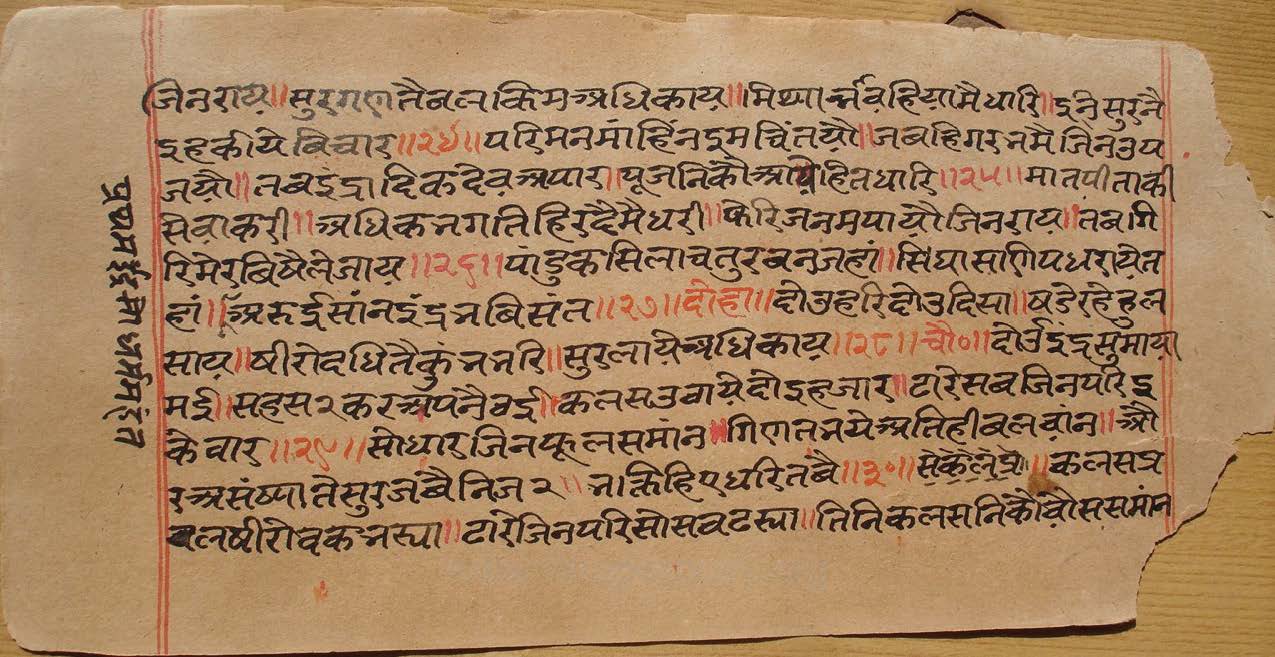 जिनराय॥सुरगणतैबलकिमअधिकाय॥मिथ्या हियामैधारि॥इनिसुरनै
इहकीयेबिचार॥२४॥परिमनमांहिंनइमचिंतयौ॥जबहिगरभमैजिनउप
जयौ॥तबइंद्रादिकदेवअपार॥पूजनिकौआयेहितधारि॥२५॥मातपीताकी
सेवाकरी॥अधिकभगतिहिरदैमैधरी॥फेरिजनमपायौजिनराय॥तबगि
रिमेरबिषैलेजाय॥२६॥पांडुकसिलाचतुरबनजहां॥सिंघासणिपधरायेत
हां॥अरुईसांनइंद्र ॥२७॥दोहा॥दोउहरिदोउदिसा॥षडेरहेहुल
साय॥षीरोदधितैकुंभभरि॥सुरलायेअधिकाय॥२८॥चौ०॥दोउइंद्रसुमाया
मई॥सहस२करअपनैवई॥कलसउवायेदोइहजार॥ढारेसबजिनपरिइ
केवार॥२९॥सोधारजिनफूलसमांन॥गिणतभयेअतिहीबलवांन॥औ
रअसंष्यातैसुरजबैनिज२॥भक्तिहिएधरितबै॥३०॥ कलसप्र
बलषीरोदकभस्या॥ढारेजिनपरिसोसबढस्या॥तिनिकलसनिकौव्यौससमांन